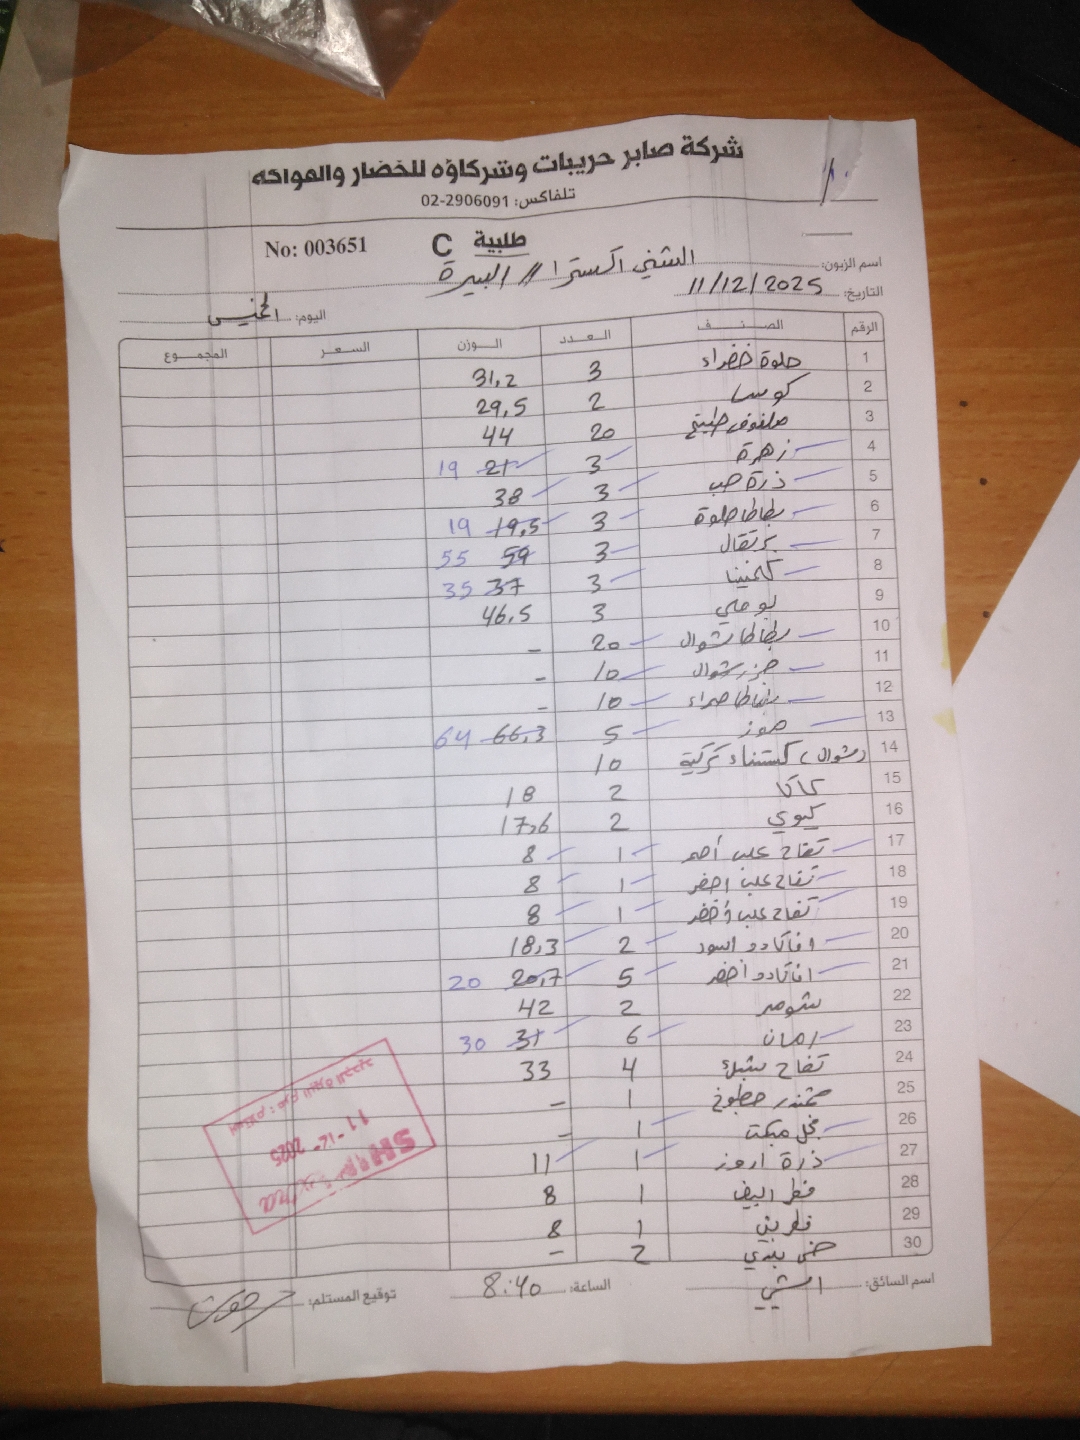 شركة صابر حريبات وشركاؤه للخضار والفواكه
تلفاكس: 02-2906091
طلبية C No: 003651
اسم الزبون: الشني اكسترا // البيرة
التاريخ: 11/12/2025 اليوم: الخميس
الرقم الصنف العدد الوزن السعر المجموع
1 حلوة خضراء 3 31,2
2 كوسا 2 29,5
3 ملفوف طبيخ 20 44
4 زهرة 3 21 19
5 ذرة حب 3 38
6 بطاطا حلوة 3 19,5 19
7 برتقال 3 59 55
8 كلمنتينا 3 37 35
9 بوملي 3 46,5
10 بطاطا شوال 20 -
11 جزر شوال 10 -
12 بطاطا حمراء 10 -
13 موز 5 66,3 64
14 (شوال) كستناء تركية 10
15 كاكا 2 18
16 كيوي 2 17,6
17 تفاح علب أحمر 1 8
18 تفاح علب اصفر 1 8
19 تفاح علب أخضر 1 8
20 افاكادو اسود 2 18,3
21 افاكادو أخضر 5 20,7 20
22 شومر 2 42
23 رمان 6 31 30
24 تفاح سبشل 4 33
25 شمندر مطبوخ 1 -
26 فجل مبكت 1 -
27 ذرة اروز 1 11
28 فطر ابيض 1 8
29 فطر بني 1 8
30 خس بلدي 2 -
اسم السائق: الساعة: 8:40 توقيع المستلم:
11-12-2025